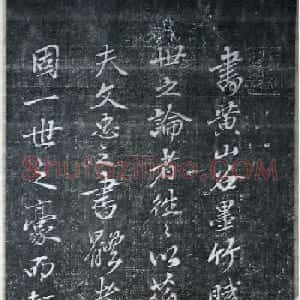 書黄山谷墨竹賦
世之論者往々以
夫文忠之書體
國一世之豪而
shufaziliao.com